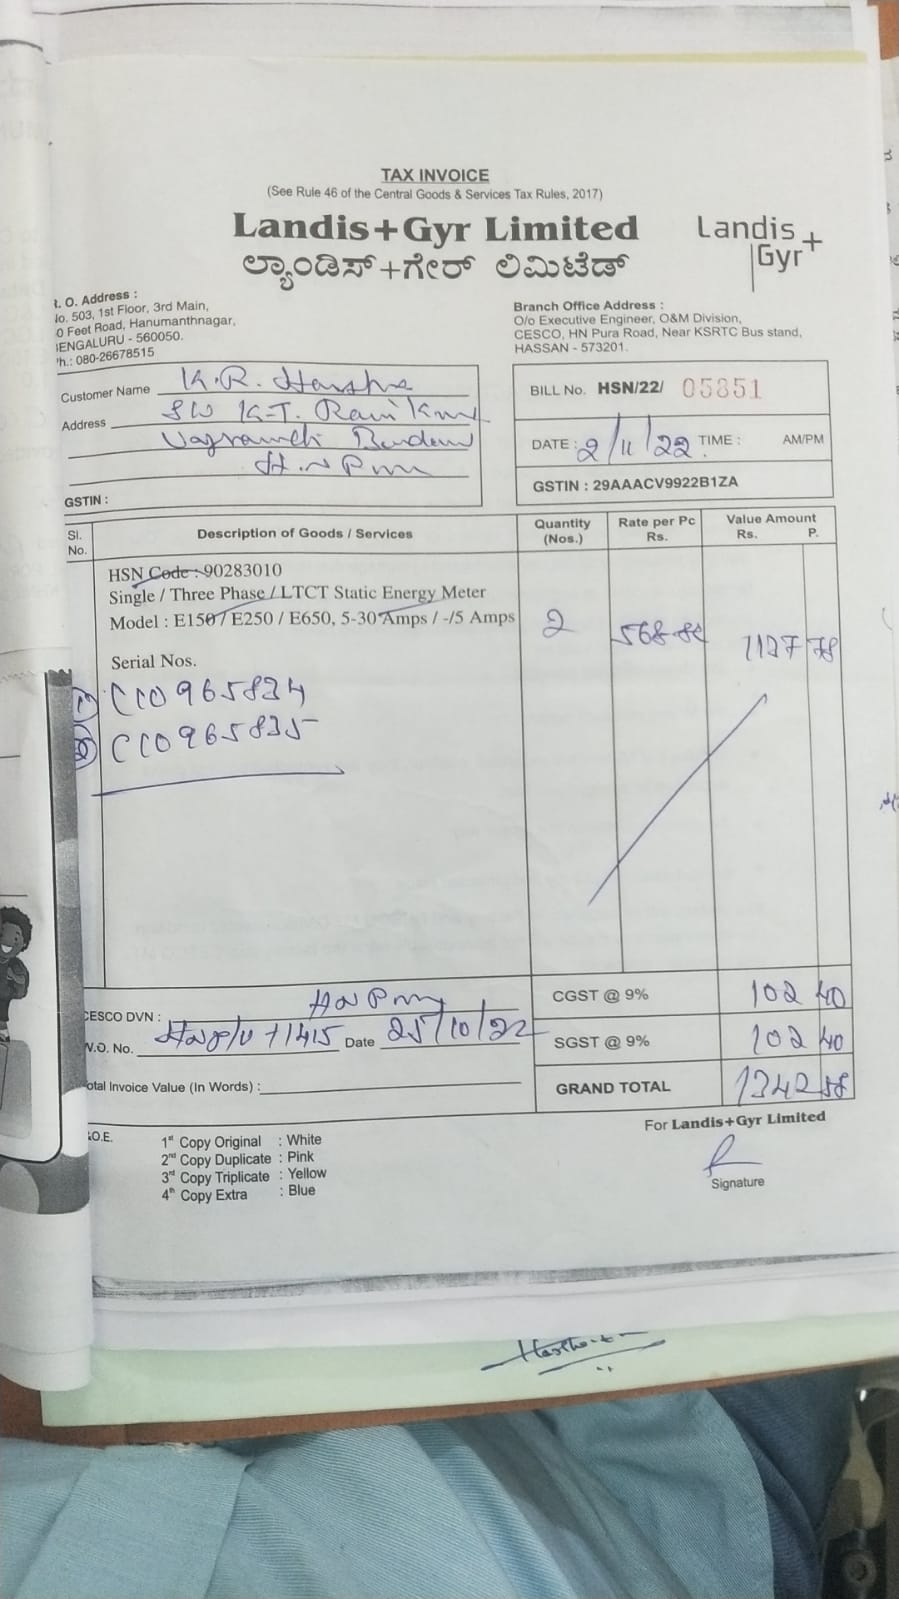 TAX INVOICE
(See Rule 46 of the Central Goods & Services Tax Rules, 2017)
Landis+Gyr Limited
ಲ್ಯಾಂಡಿಸ್+ಗೇರ್ ಲಿಮಿಟೆಡ್
Landis
Gyr+
R. O. Address :
No. 503, 1st Floor, 3rd Main,
0 Feet Road, Hanumanthnagar,
BENGALURU - 560050.
Ph.: 080-26678515
Branch Office Address :
O/o Executive Engineer, O&M Division,
CESCO, HN Pura Road, Near KSRTC Bus stand,
HASSAN - 573201.
Customer Name K.R. Harsha
Address S/o K.T. Ravi Kumar
H.N Pura
GSTIN :
BILL No. HSN/22/ 05851
DATE : 2/11/22 TIME : AM/PM
GSTIN : 29AAACV9922B1ZA
Sl. No. Description of Goods / Services Quantity (Nos.) Rate per Pc Rs. Value Amount Rs. P.
HSN Code : 90283010
Single / Three Phase / LTCT Static Energy Meter
Model : E150 / E250 / E650, 5-30 Amps / -/5 Amps 2 568-89 1137 78
Serial Nos.
1) C10965834
2) C10965835
CGST @ 9% 102 40
CESCO DVN : HN Pura
W.O. No. Date 25/10/22 SGST @ 9% 102 40
Total Invoice Value (In Words) : GRAND TOTAL 1342 58
For Landis+Gyr Limited
&.O.E.
1st Copy Original : White
2nd Copy Duplicate : Pink
3rd Copy Triplicate : Yellow
4th Copy Extra : Blue
Signature